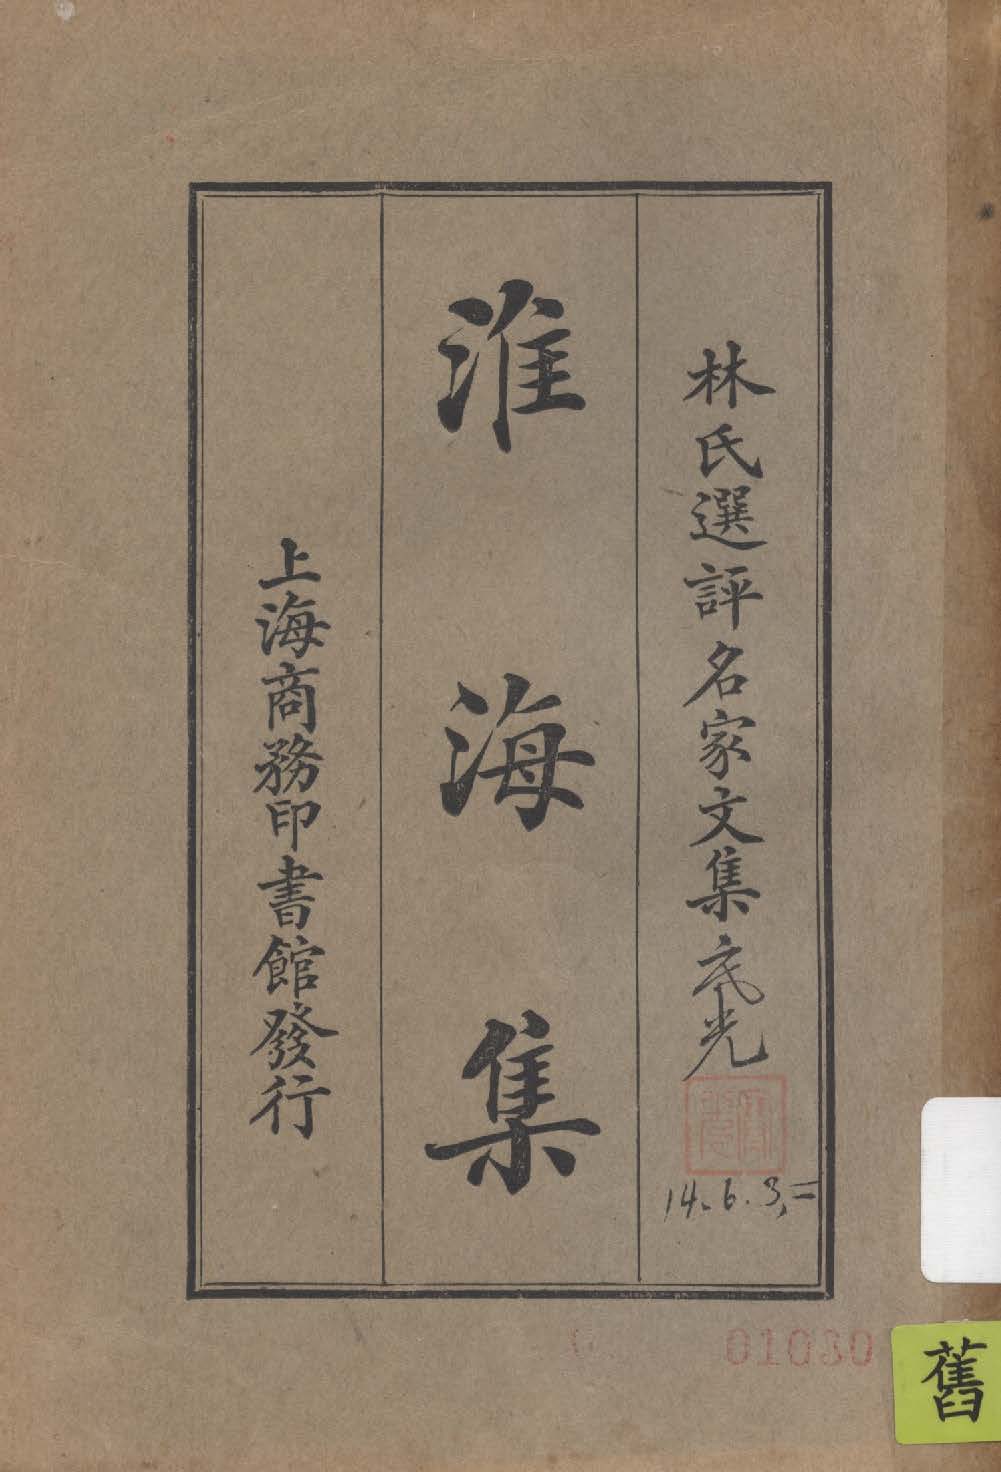 林氏選評名家文集
光
14.6.3,二
淮海集
上海商務印書館發行
01030
舊